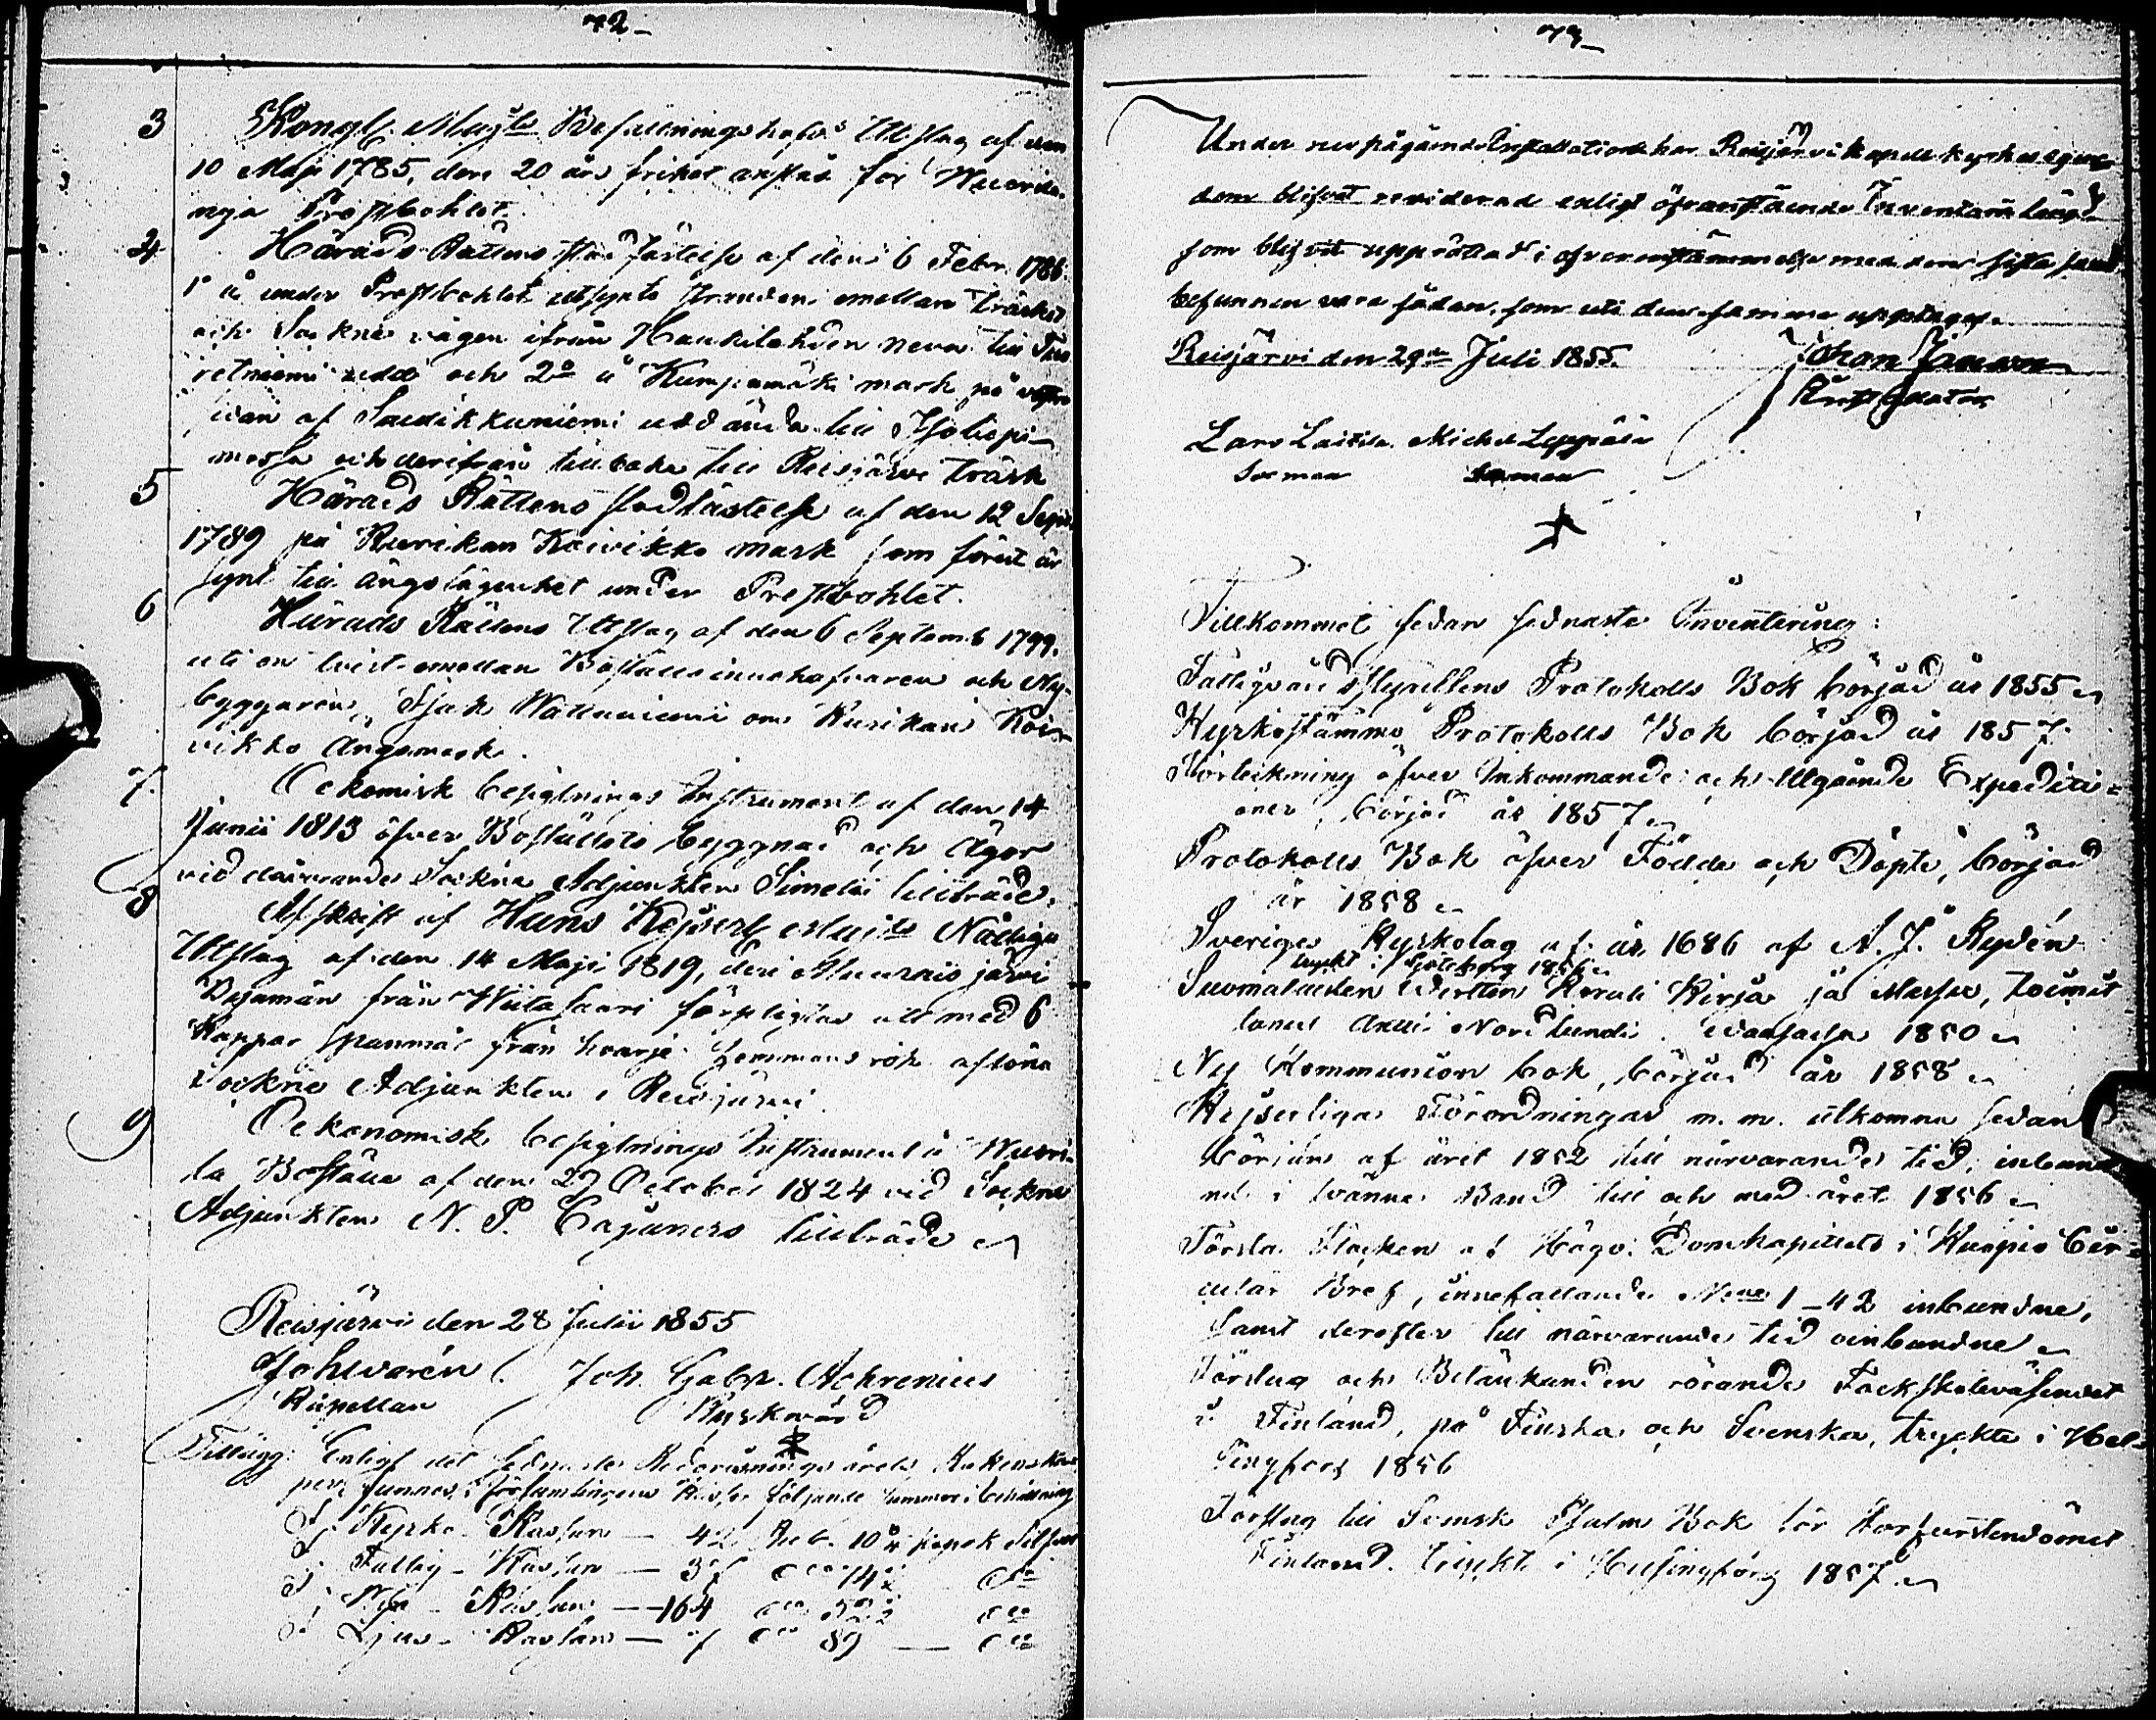 72
3 Kongl. Maj:ts Befallningshafvs Utslag af den
10 Maji 1785, den 20 års frihet anslås för Wuorila
nya Prestbohlet.
4 Härads Rättens stadfästelse af den 6 Febr. 1786.
1o å under Prestbohlet utsynte stranden emellan träsket
och Sockne vägen ifrån Haukilahden neva till
retniemi udd och 2o å Kumpumäki mark på
idan af Saudikkuniemi udd ända till
mossa och derifrån tillbaka till Reisjärvi träsk
5 Härads Rättens stadfästelse af den 12 Sept.
1789 på Rusikan Koivikko mark som förut är
synt till ängslägenhet under Prestbohlet.
6 Härads Rättens Utslag af den 6 Septemb 1799.
uti en tvist emellan Boställsinnehafvaren och Ny-
byggaren Isak Wattuniemi om Kusikan Koi-
vikko Ängsmark.
7. Oekomisk besigtnings Instrument af den 14
Junii 1813 öfver Boställets byggnad och Ägor
vid dåvarande Sockne Adjunkten Simelii tillträde.
8 Afskrift af Hans Kejserl. Maj:ts Nådiga
Utslag af den 14 Maji 1819, den
Byamän från Wiitasaari förpligtas att med 6
Kappar spanmål från hvarje hemmans rök aflöna
Sockne Adjunkten i Reisjärvi.
9 Oekonomisk besigtnings Instrument å Wuori-
la Boställe af den 29 October 1824 vid Sockne
Adjunkten N. P. Cajaners tillträde
Reisjärvi den 28 Julii 1855
Joh. Gabr. Achrenius
Kapellan Kyrkvärd
Tillägg: Enligt det sednaste Redovisnings årets Räkenska-
per funnos i Församlingens Kassor följande summor i behållning
I Kyrko-Kassan — 42 Rub. 10 kopek Silfver
I Fattig-Kassan — 37 do 14 do
I Kassan — 164 do do
I Ljus-Kassan — 7 do 89 — do
73
Under nu pågående Installation har Reisjärvi kapell kyrkas egen-
dom blifvit reviderad enligt öfvanstående Inventarii längd
som blifvit upprättad i öfverensstämmelse med den sista samt
befunnen vara sådan, som uti densamma upptages.
Reisjärvi den 29de Juli 1855. Johan
Lars Laitila Michel Leppälä
Sexman Sexman
Tillkommet sedan sednaste Inventering:
Fattigvårdsstyrelsens Protokolls Bok börjad år 1855
Kyrkostämmo Protokolls Bok börjad år 1857.
Förteckning öfver Inkommande och Utgående Expediti-
oner, börjad år 1857
Protokolls Bok öfver Födde och Döpte, börjad
år 1858
Sveriges Kyrkolag af år 1686 af A. J. Rydén
tryckt i Götheborg 1856
Suomalaisten Wirtten Koraali Kirja ja Messu, toimit
tanut Antti Nordlundi. Waasassa 1850
Ny Kommunion bok, börjad år 1858
Kejserliga Förordningar m. m. utkomna sedan
början af året 1852 till närvarande tid, inbund-
ne i tvänne Band till och med året 1856
Första Flocken af Högv. Domkapitlets i Kuopio Cir-
culär Bref, innefattande No 1–42 inbundne,
samt derefter till närvarande tid oinbundne
Förslag och Betänkanden rörande Fockskoleväsendet
i Finland, på Finska och Svenska, tryckte i Hel-
singfors 1856
Förslag till Svensk Psalm Bok för Storfurstendömet
Finland. tryckt i Helsingfors 1857